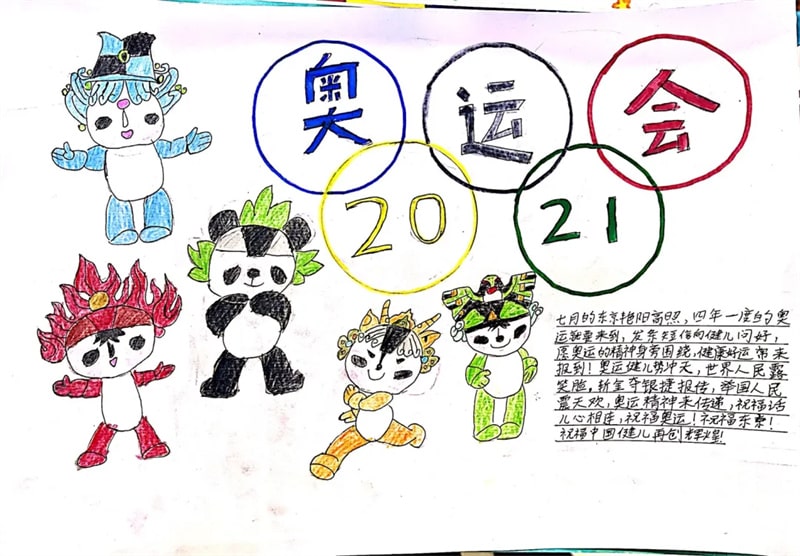 奥运会
2021
七月的东京艳阳高照，四年一度的奥
运就要来到，发条短信向健儿问好，
愿奥运的精神身旁围绕，健康好运带来
报到！奥运健儿势冲天，世界人民露
笑脸，斩金夺银捷报传，举国人民
震天欢，奥运精神来传递，祝福话
儿心相连，祝福奥运！祝福东京！
祝福中国健儿再创辉煌！